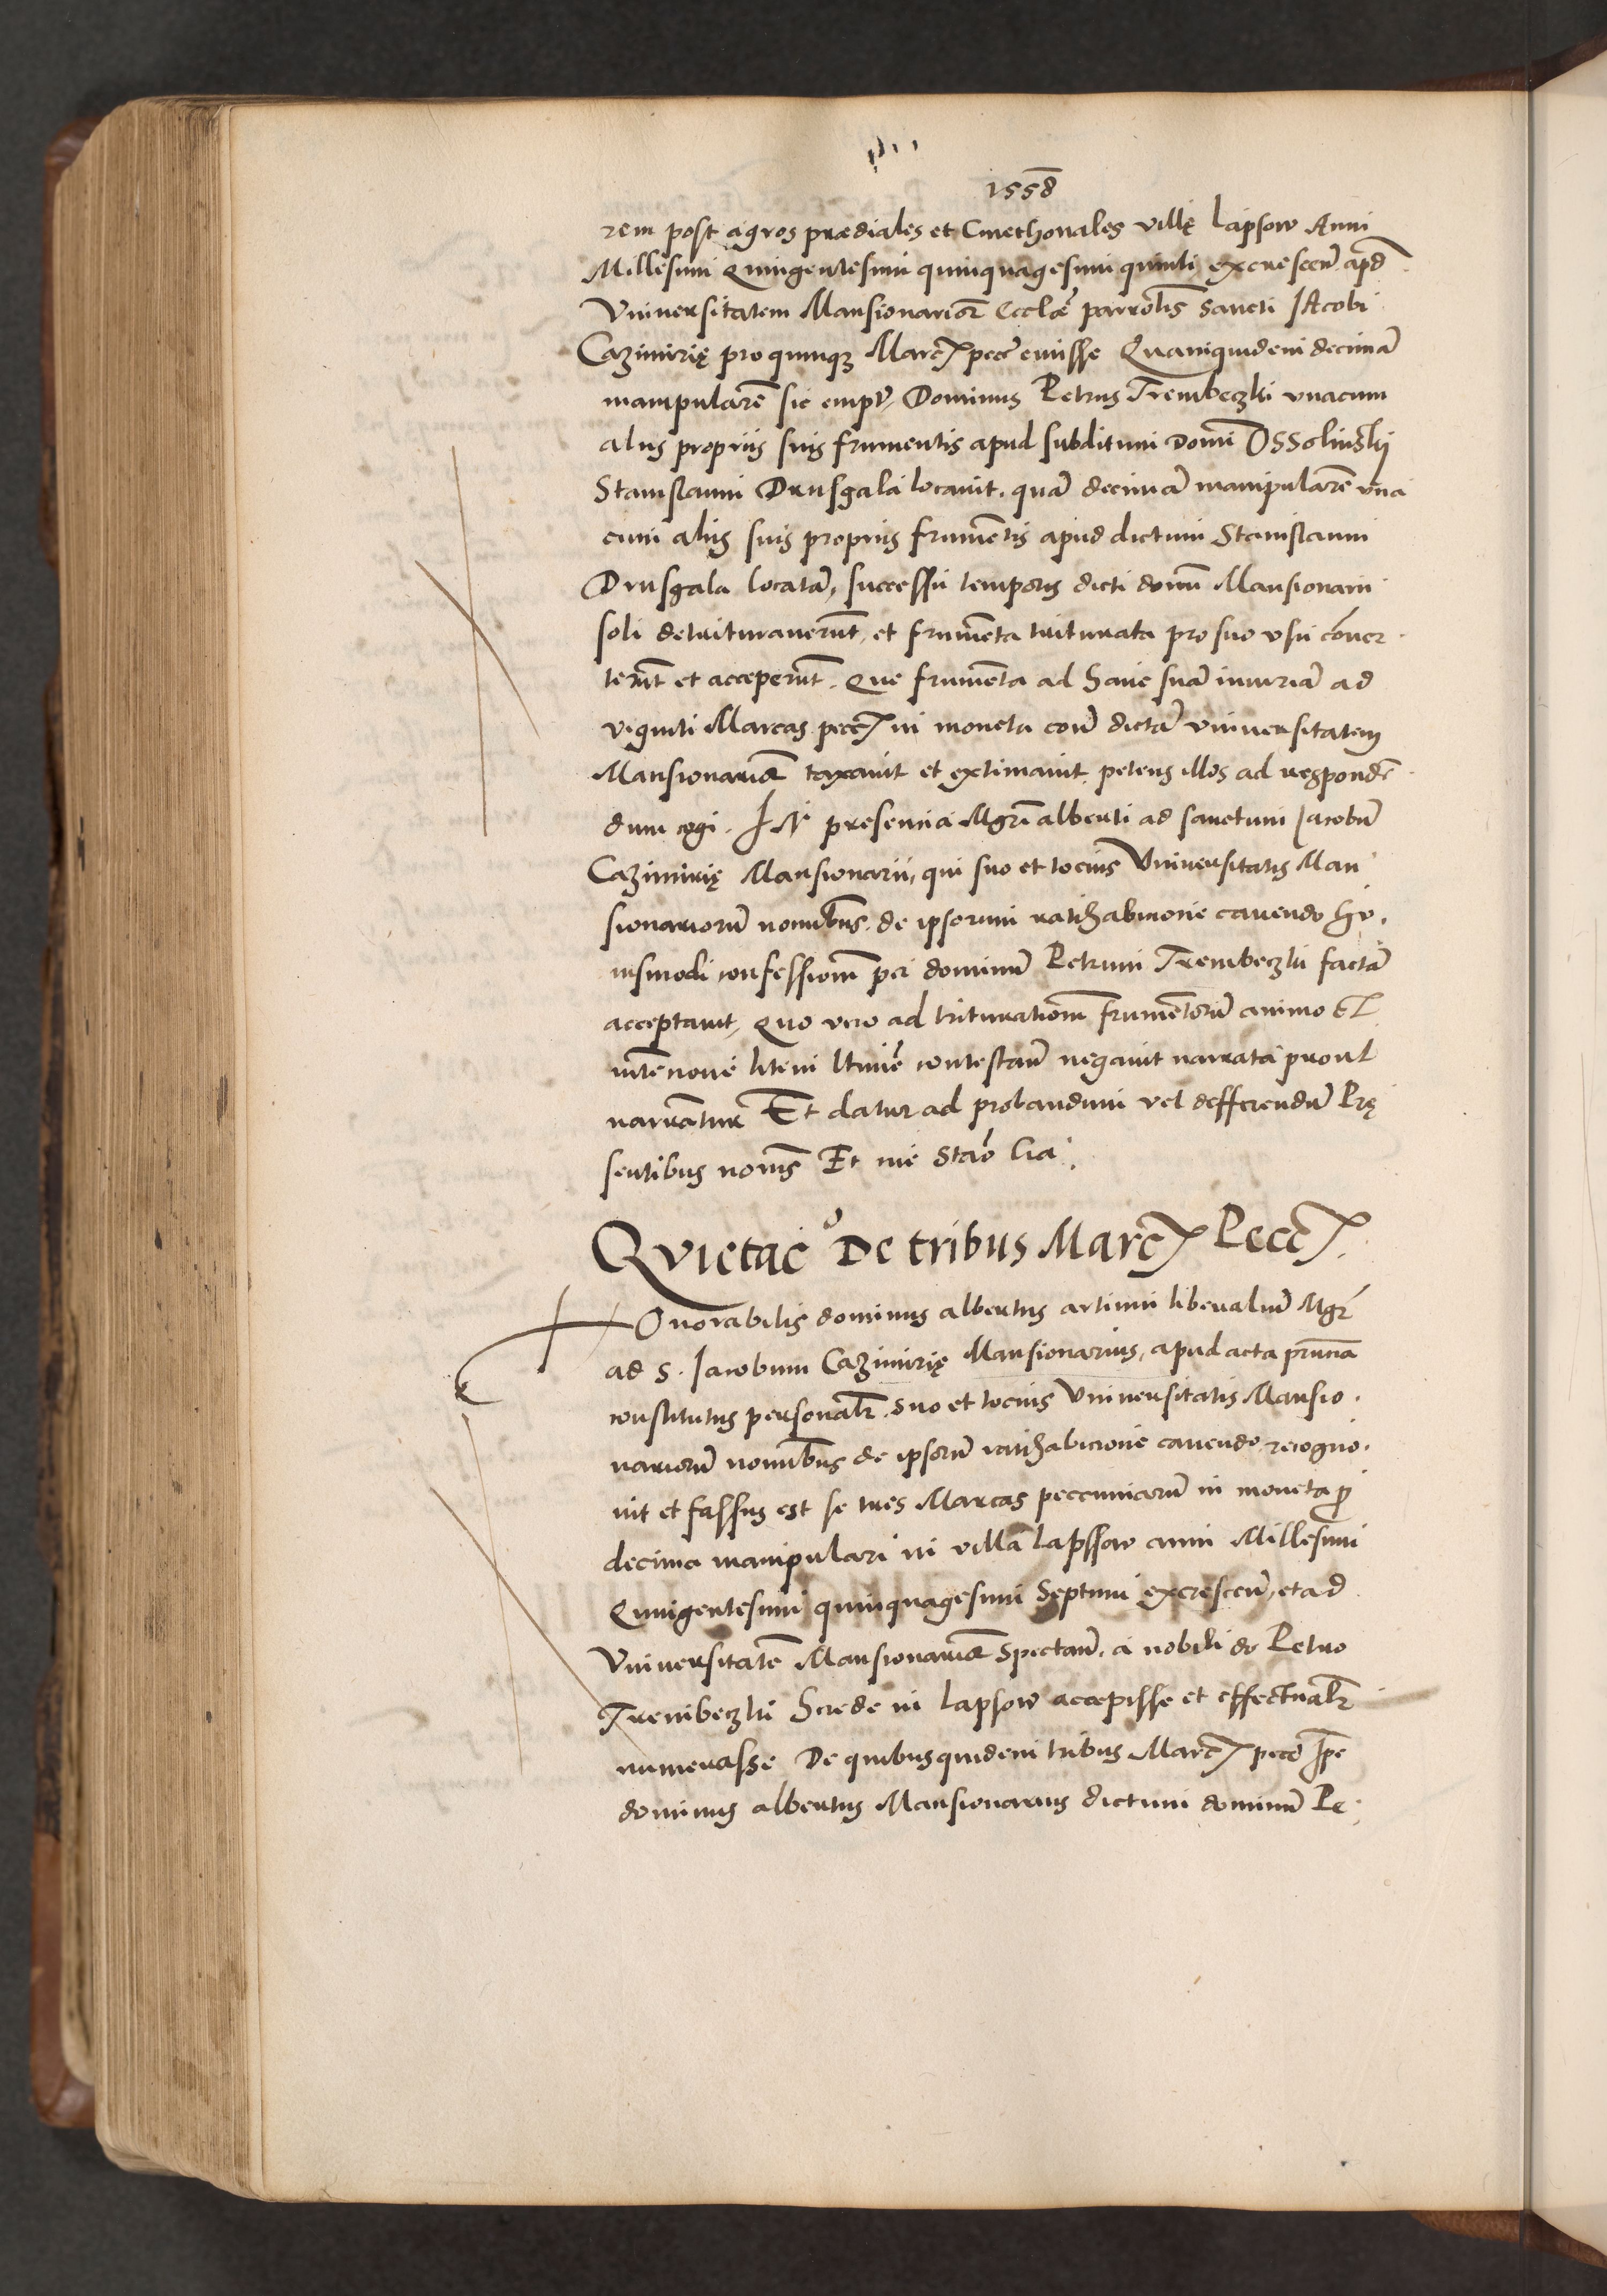 1558
rem post agros prædiales et Cmethonales villę Lapsow Anni
Millesimi Quingentesimi quinquagesimi quinti, excrescen̄ apd̄
Vniuersitatem Mansionarior̄ Eccl̄æ parrol̄is Sancti IAcobi
Cazimirię pro quinqꝫ Marc̄ pec̄ emisse Quamquidem decimā
manipularē sic empt̄, Dominus Petrus Trembeczki vnacum
alys propriis suis frumentis apud subditum Domi Ossolinskij
Stanislaum Drusgala locauit. quā decimā manipularē vna
cum aliis suis propriis frumētis apud dictum Stanislaum
Drusgala locatā, successu temporis dicti domī Mansionarii
soli detrituraverūt, et frumēta triturata pro suo vsu cōuer
terūt et acceperūt. Que frumēta ad hanc suā iniuriā ad
viginti Marcas pecc̄ in moneta coīn dictā vniuersitatem
Mansionariā taxauit et extimauit, petens illos ad respondē
dum cogi. IN presencia Mgr̄i alberti ad sanctum Jacobū
Cazimirię Mansionarii, qui suo et tocius Vniuersitatis Man
sionariorū nomībus. de ipsorum ratihabicione cauendo hu.
iusmodi confessionē per dominū Petrum Trembeczki factā
acceptauit, Quo vero ad triturationē frumētorū animo Et
intēcione litem ltimē contestan̄ negauit narrata prout
narrātur Et datur ad probandum vel defferendū Prę
sentibus nobis Et me Stāo Lia.
Qvietac̄o De tribus Marc̄ Pecc̄.
HOnorabilis dominus albertus artium liberaliū Mgr̄
ad S. Jacobum Cazimirię Mansionarius, apud acta prn̄cia
constitutus personalr̄. suo et tocius Vniuersitatis Mansio.
nariorū nomībus de ipsorū ratihabicione cauendo, recogno.
uit et fassus est se tres Marcas peccuniarū in moneta p̄
decima manipulari in villa Lapssow anni Millesimi
Quingentesimi quinquagesimi Septimi excrescen̄, et ad
Vniuersitatē Mansionariā spectan̄. a nobili do Petro
Trembeczki herede in Lapsow accepisse et effectualr̄
numerasse De quibusquidem tribus Marc̄ pecc̄ ip̄e
dominus albertus Mansionarius dictum dominū Pe.